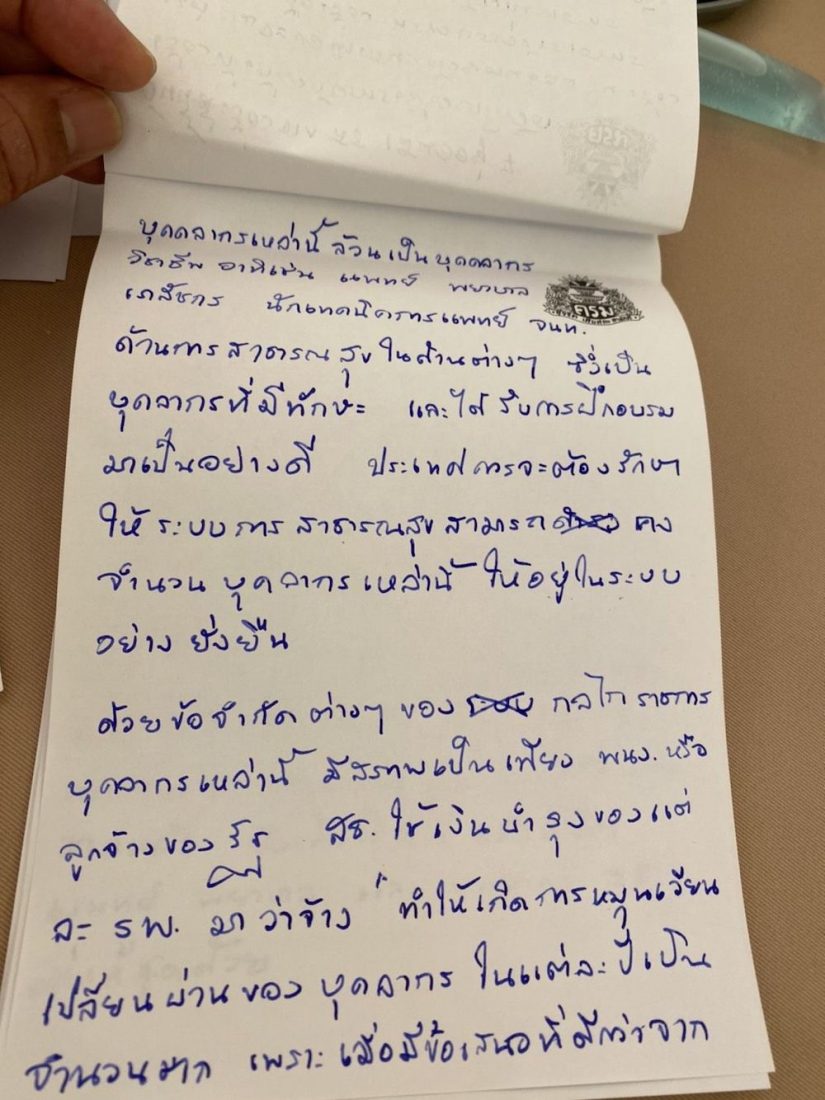 บุคคลากรเหล่านี้ ล้วนเป็นบุคคลากร
วิชาชีพ อาทิเช่น แพทย์ พยาบาล
เภสัชกร นักเทคนิคการแพทย์ จนท.
ครม
ด้านการสาธารณสุขในด้านต่างๆ ซึ่งเป็น
บุคลากรที่มีทักษะ และได้รับการฝึกอบรม
มาเป็นอย่างดี ประเทศควรจะต้องรักษา
ให้ระบบการสาธารณสุขสามารถ คง
จำนวน บุคลากรเหล่านี้ ให้อยู่ในระบบ
อย่าง ยั่งยืน
ด้วยข้อจำกัดต่างๆ ของ กลไกราชการ
บุคลากรเหล่านี้ มีสภาพเป็นเพียง พนง. หรือ
ลูกจ้างของรัฐ ที่ สธ. ใช้เงินบำรุงของแต่
ละ รพ. มาว่าจ้าง ทำให้เกิดการหมุนเวียน
เปลี่ยนผ่านของ บุคลากร ในแต่ละปีเป็น
จำนวนมาก เพราะเมื่อมีข้อเสนอที่ดีกว่าจาก